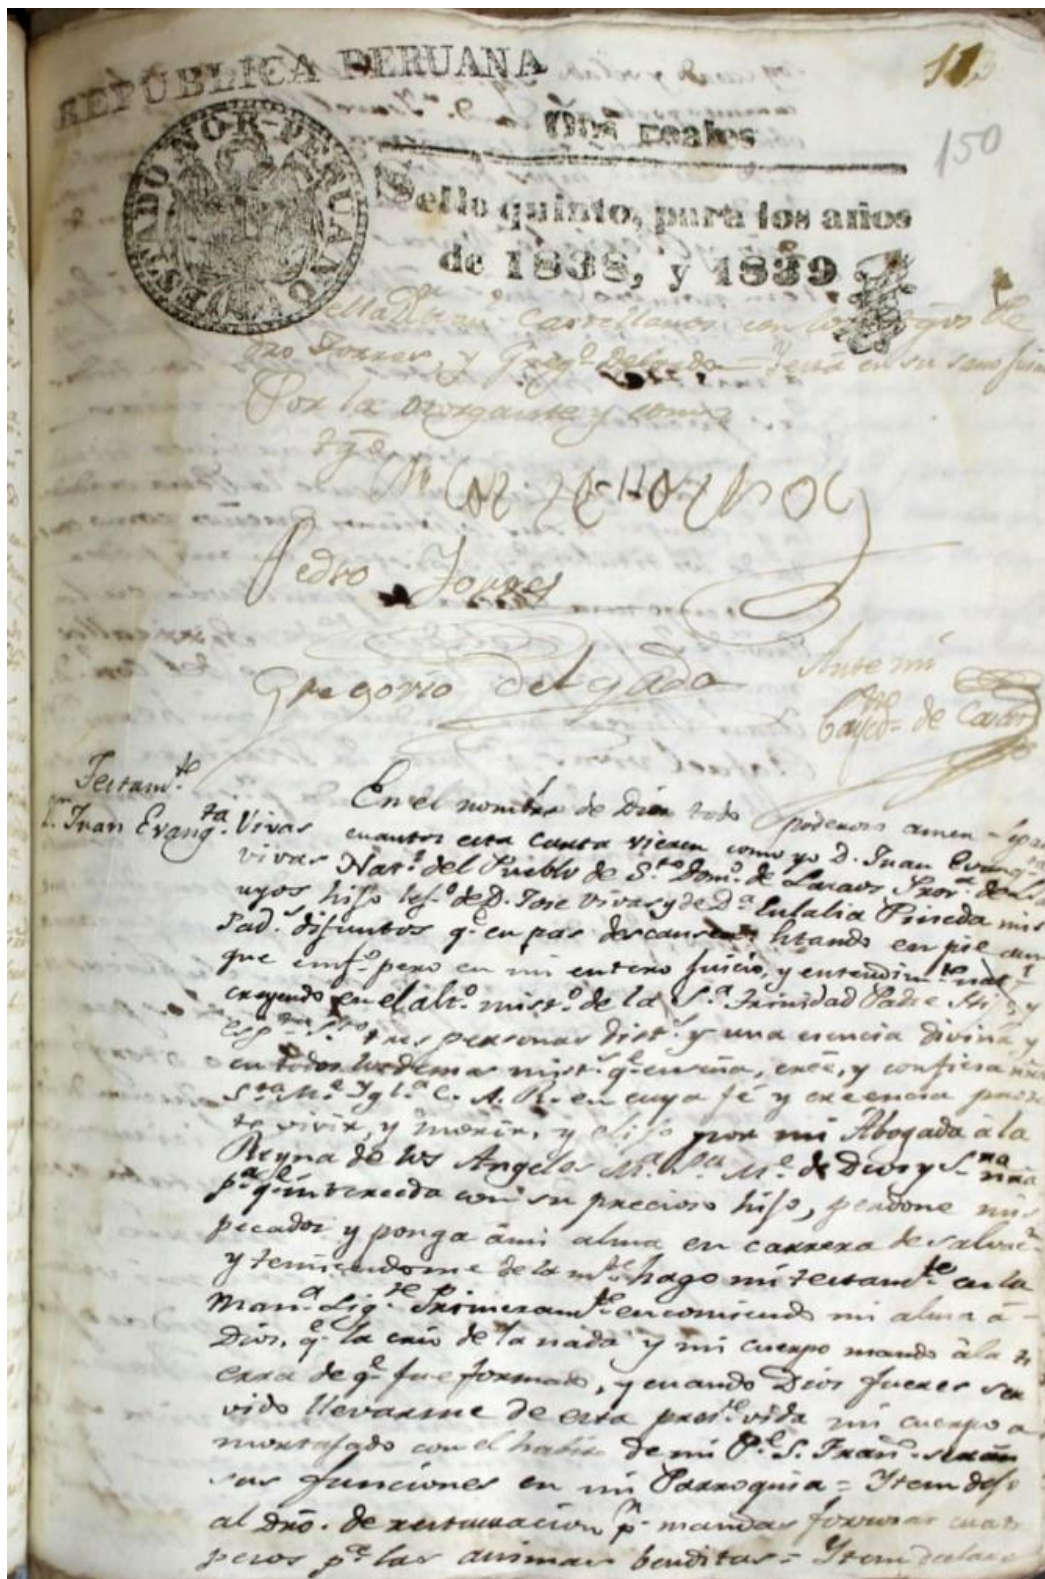 REPUBLICA PERUANA
150
Dos reales
ESTADO NOR-PERUANO
Sello quinto, para los años
de 1838, y 1839
Castellanos con los tgos Pe
dro Torres, y Greg.o Delgado
Por la otorgante y como
tgo
Pedro Torres
Gregorio delgado
Ante mi
de
Testam.te
D. Juan Evang.ta Vivas
En el nombre de Dios todo poderoso amen = Sepan
cuantos esta Carta vieren como yo D. Juan Evang.ta
vivas Nat.l del Pueblo de S.to Dom.o de Laraos
uyos hijo leg.o de D. Jose vivas y de D.a Eulalia Pineda mis
Pad.s difuntos q.e en pas descansen estando en pie aun
que emf.o pero en mi entero juicio, y entendim.to nat.l
creyendo en el alt.o mist.o de la S.a Trinidad Padre Hijo y
esp.tu S.to tres personas dist.s y una esencia divina y
en todos los demas mist.s q.e enseña, creé, y confiesa nra
S.ta M.e Ygl.a C. A. R. en cuya fé y creencia protes
to vivir, y morir, y elijo por mi Abogada à la
Reyna de los Angeles M.a S.a M.e de Dios y S.ra nra
p.a q.e interceda con su precioso hijo, perdone mis
pecados y ponga à mi alma en carrera de salvac.n
y temiendome de la m.te hago mi testam.te en la
man.a sig.te Primeram.te encomiendo mi alma à
Dios, q.e la crio de la nada y mi cuerpo mando à la ti
erra de q.e fue formado, y cuando Dios fuere ser
vido llevarme de esta pres.te vida mi cuerpo a
mortajado con el habito de mi P.e S. Fran.co seran
sus funciones en mi Parroquia = Ytem dejo
al dro. de restauracion p.r mandas forzosas cuatro
pesos p.a las animas benditas = Ytem declaro